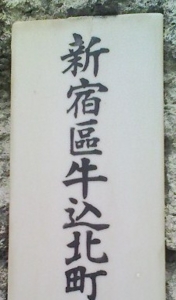 新宿區牛込北町